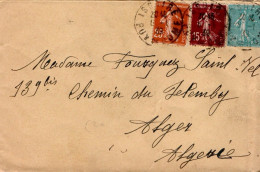 Madame Fourquez Saint-Vel
139 bis
Chemin du Telemly
Alger
Algerie